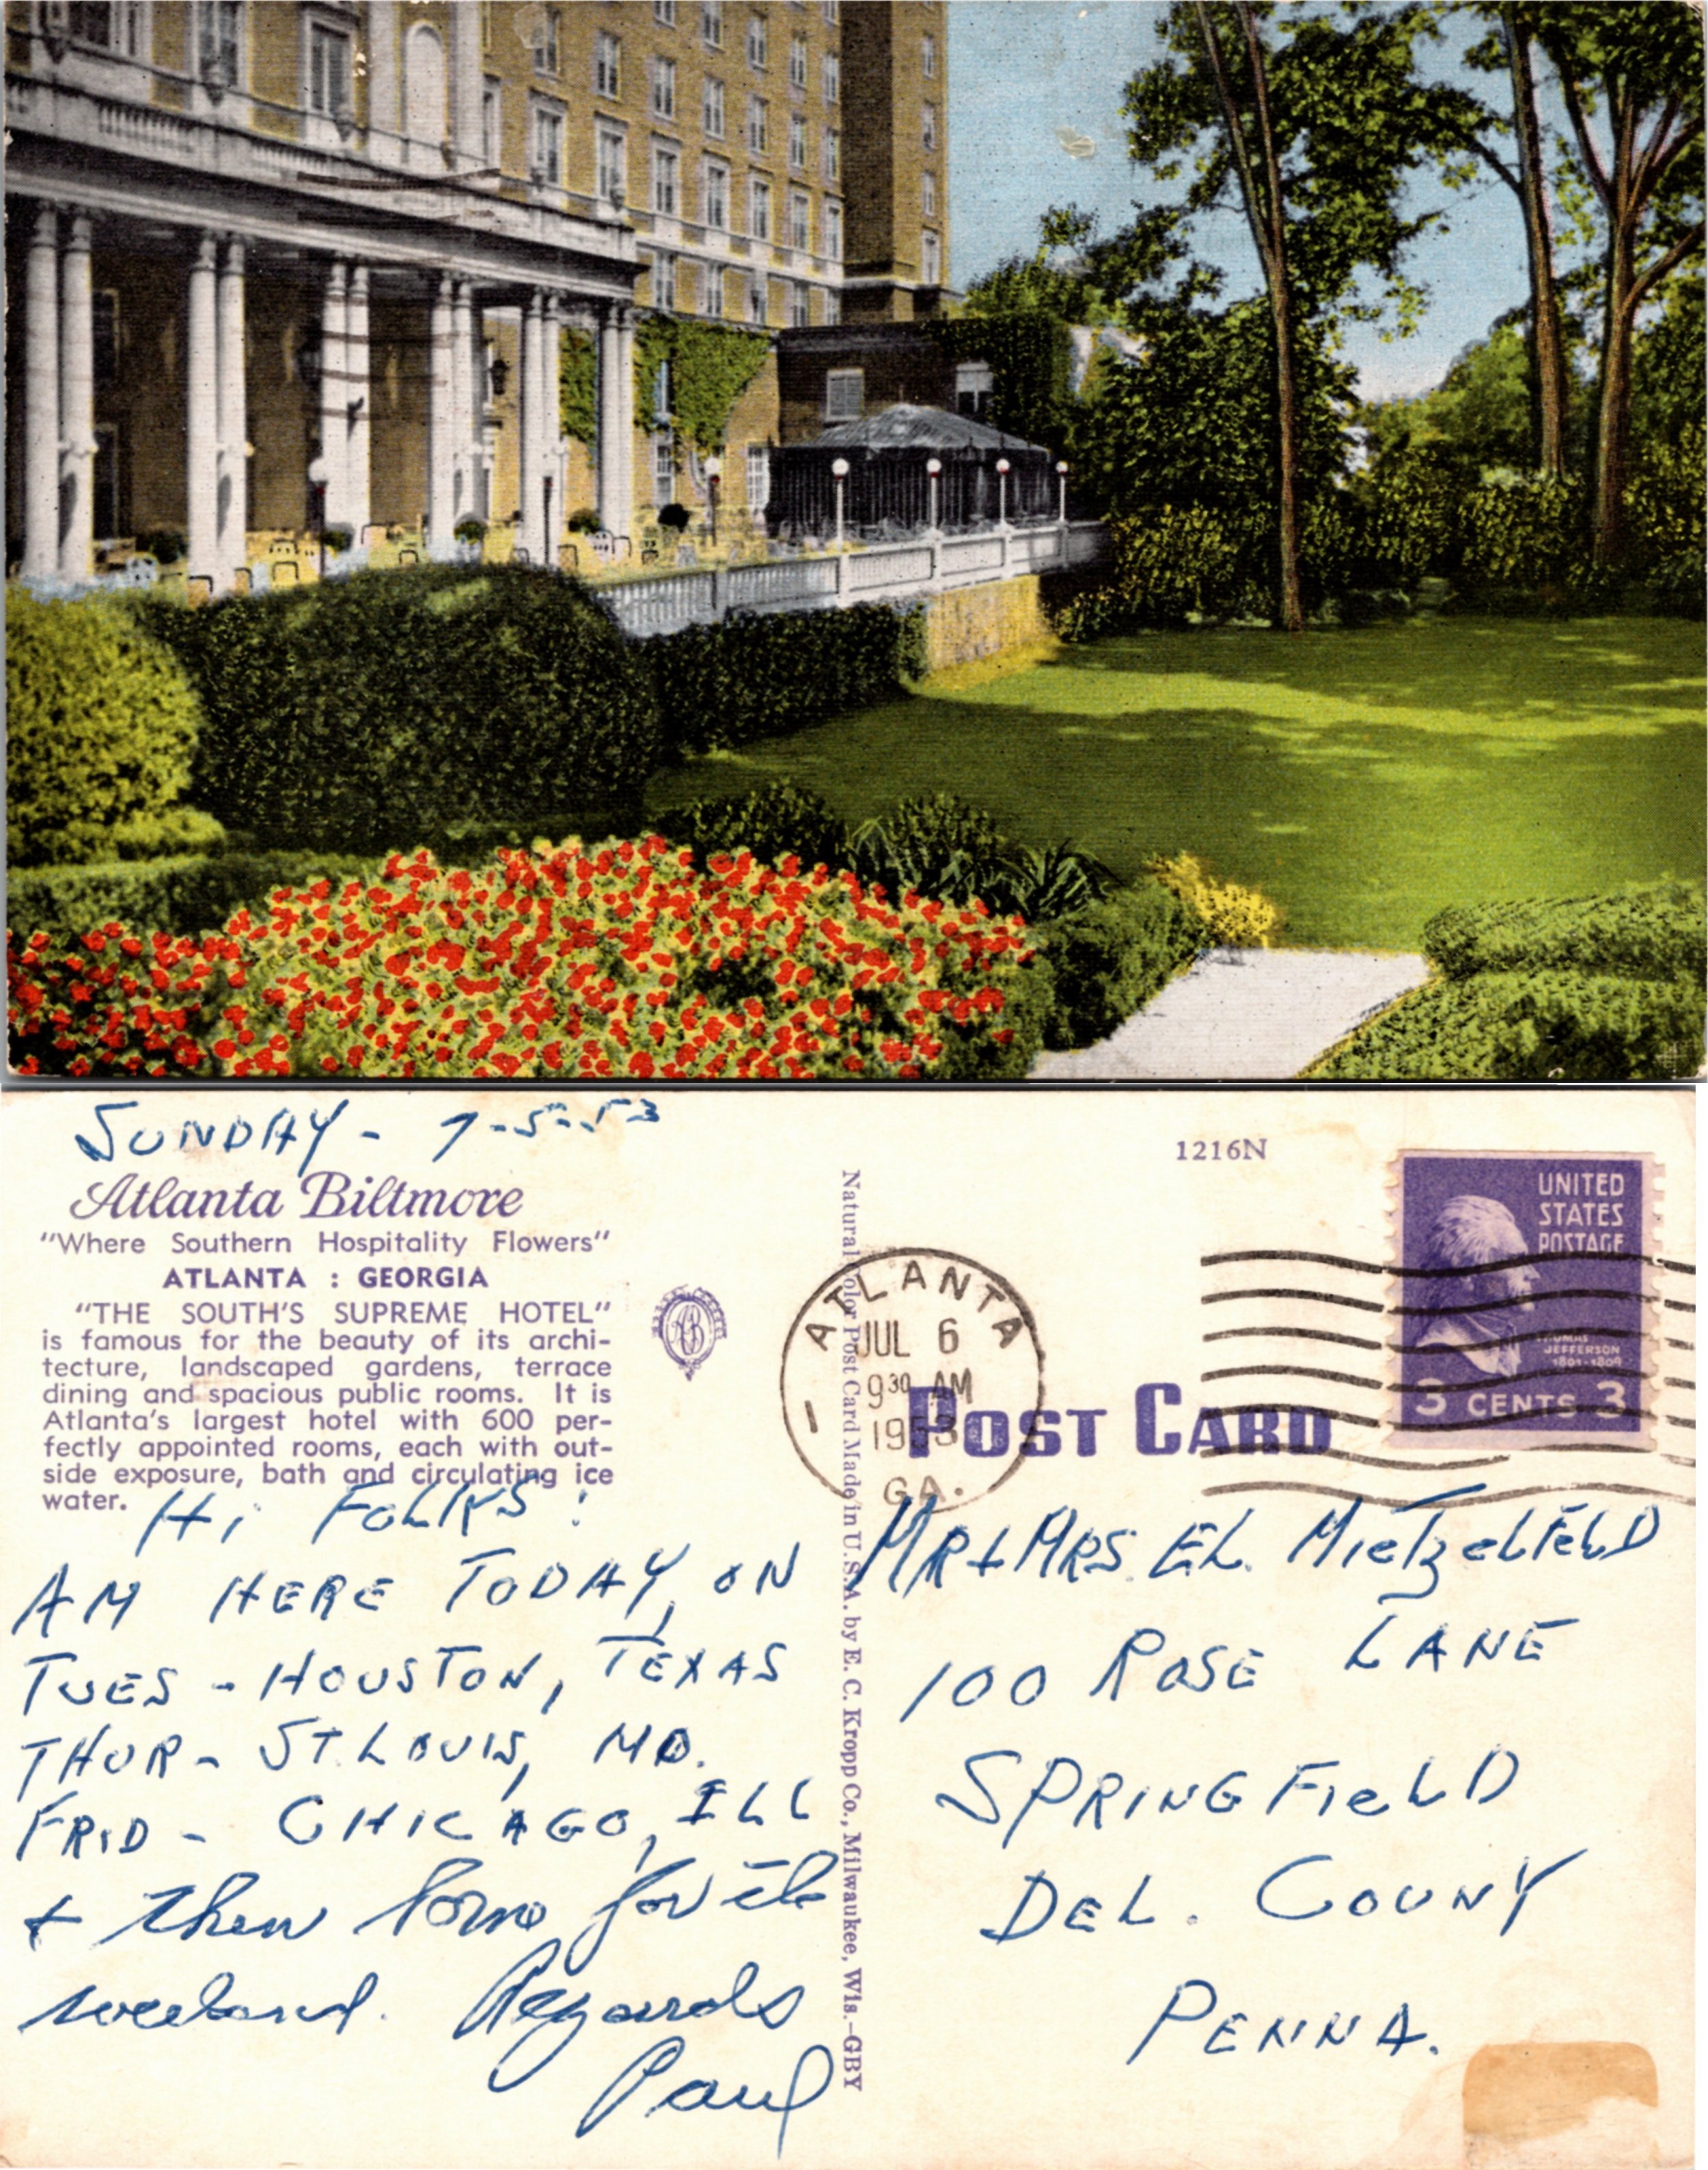 SUNDAY - 7-5-53
Atlanta Biltmore
"Where Southern Hospitality Flowers"
ATLANTA : GEORGIA
"THE SOUTH'S SUPREME HOTEL"
is famous for the beauty of its archi-
tecture, landscaped gardens, terrace
dining and spacious public rooms. It is
Atlanta's largest hotel with 600 per-
fectly appointed rooms, each with out-
side exposure, bath and circulating ice
water.
Hi FOLKS!
AM HERE TODAY, ON
TUES - HOUSTON, TEXAS
THUR - ST. LOUIS, MO.
FRID - CHICAGO, ILL
+ then home for the
weekend. Regards
Paul
AB
Natural Color Post Card Made in U.S.A. by E. C. Kropp Co., Milwaukee, Wis.-GBY
1216N
UNITED
STATES
POSTAGE
THOMAS
JEFFERSON
1801-1809
3 CENTS 3
ATLANTA
JUL 6
9 30 AM
1953
1
GA.
POST CARD
MR + MRS. E.L. MietzelFelD
100 ROSE LANE
SPRINGFIeLD
DEL. COUNY
PENNA.